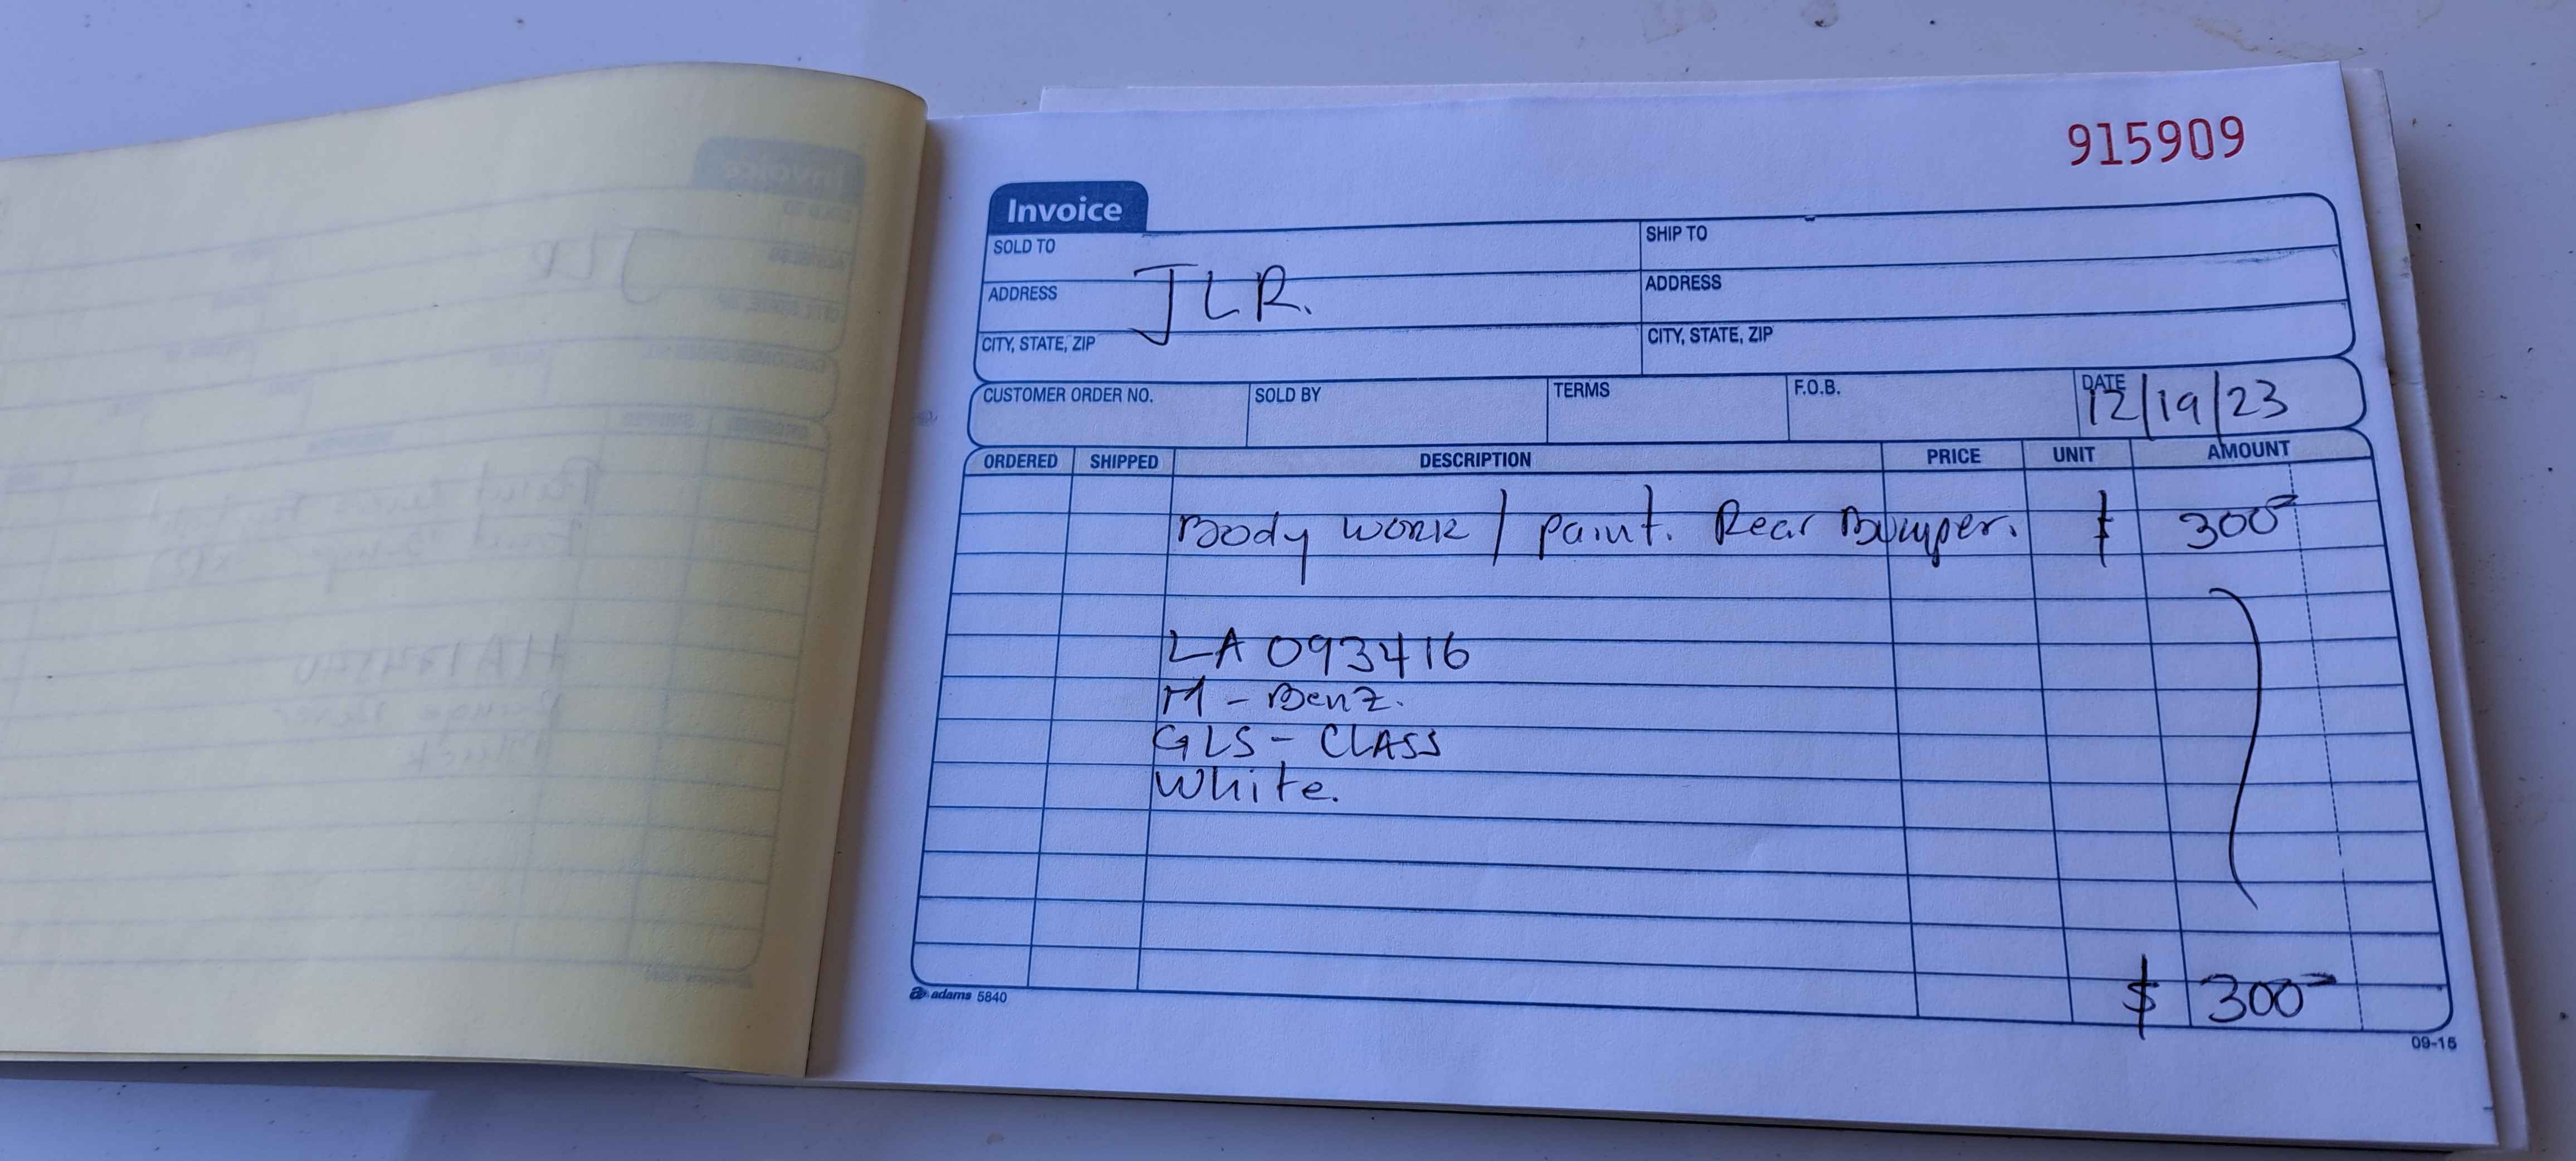 915909
Invoice
SOLD TO
SHIP TO
ADDRESS JLR.
ADDRESS
CITY, STATE, ZIP
CITY, STATE, ZIP
CUSTOMER ORDER NO. SOLD BY TERMS F.O.B. DATE 12/19/23
ORDERED SHIPPED DESCRIPTION PRICE UNIT AMOUNT
Body work / paint. Rear Bumper. $ 300-
LA093416
M-Benz.
GLS-CLASS
White.
$ 300-
adams 5840
09-15
Invoice
JLR